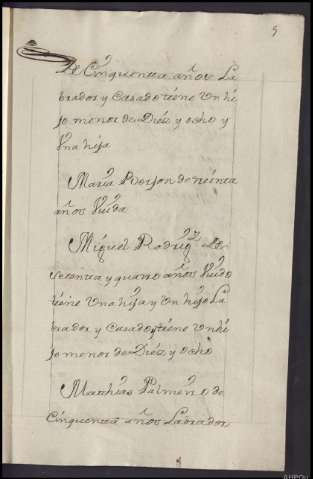 5
de Cinquenta años La
brador y Casado tiene Un hi
jo menor de Diez y ocho y
Una hija
Maria de noventa
años Viuda
Miguel Rodrigz de
Setenta y quatro años Viudo
tiene Una hija y Un hijo La
brador y Casado tiene Un hi
jo menor de Diez y ocho
Matthias Palmeño de
Cinquenta años Labrador